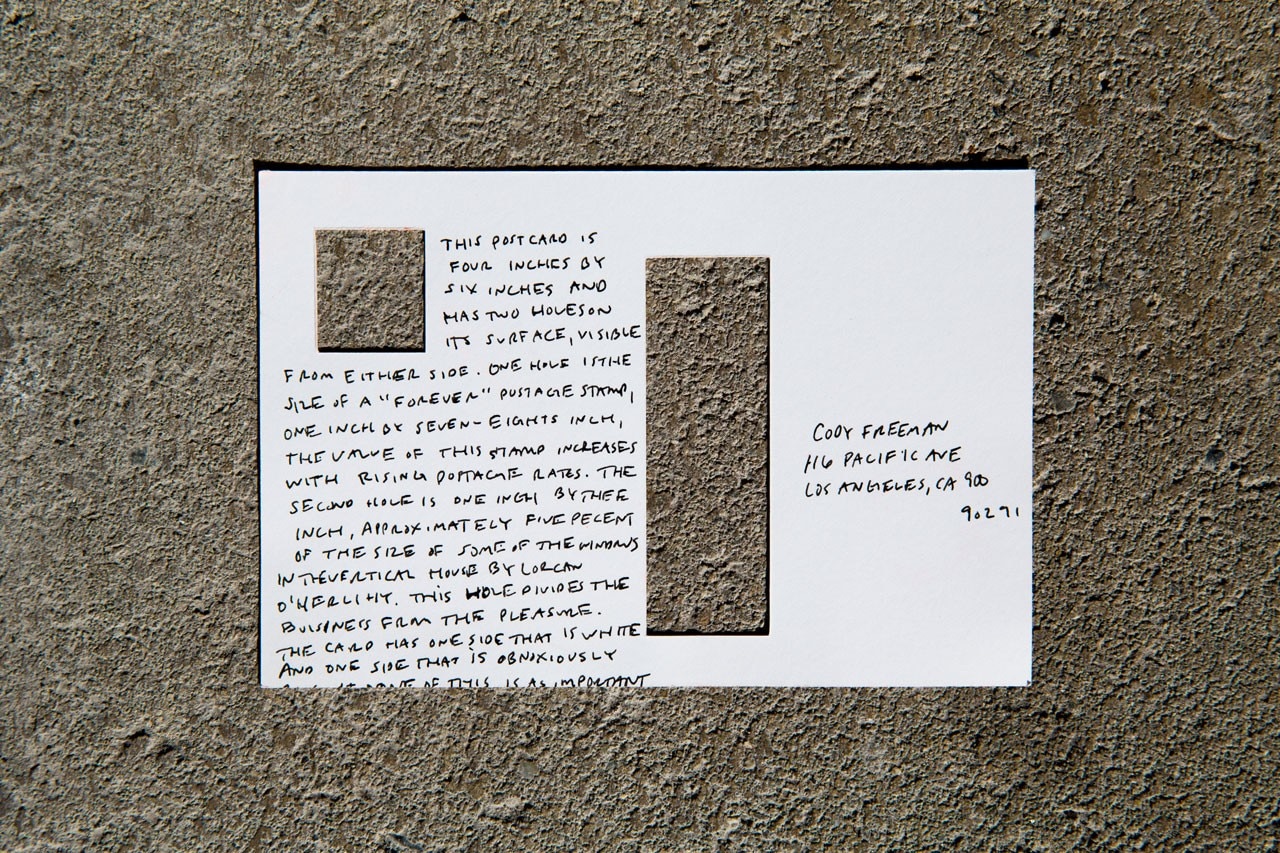 THIS POSTCARD IS
FOUR INCHES BY
SIX INCHES AND
HAS TWO HOLES ON
ITS SURFACE, VISIBLE
FROM EITHER SIDE. ONE HOLE IS THE
SIZE OF A "FOREVER" POSTAGE STAMP,
ONE INCH BY SEVEN-EIGHTS INCH,
THE VALUE OF THIS STAMP INCREASES
WITH RISING POSTAGE RATES. THE
SECOND HOLE IS ONE INCH BY THEE
INCH, APPROXIMATELY FIVE PECENT
OF THE SIZE OF SOME OF THE WINDOWS
IN THE VERTICAL HOUSE BY LORCAN
O'HERLIHY. THIS HOLE DIVIDES THE
BUISINESS FROM THE PLEASURE.
THE CARD HAS ONE SIDE THAT IS WHITE
AND ONE SIDE THAT IS OBNOXIOUSLY
OF THIS IS AS IMPORTANT
CODY FREEMAN
116 PACIFIC AVE
LOS ANGELES, CA 900
90291